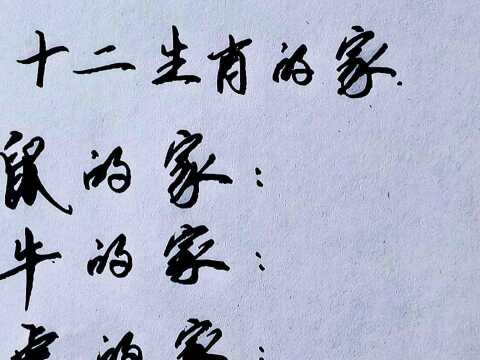 十二生肖的家.
鼠的家:
牛的家:
虎的家: